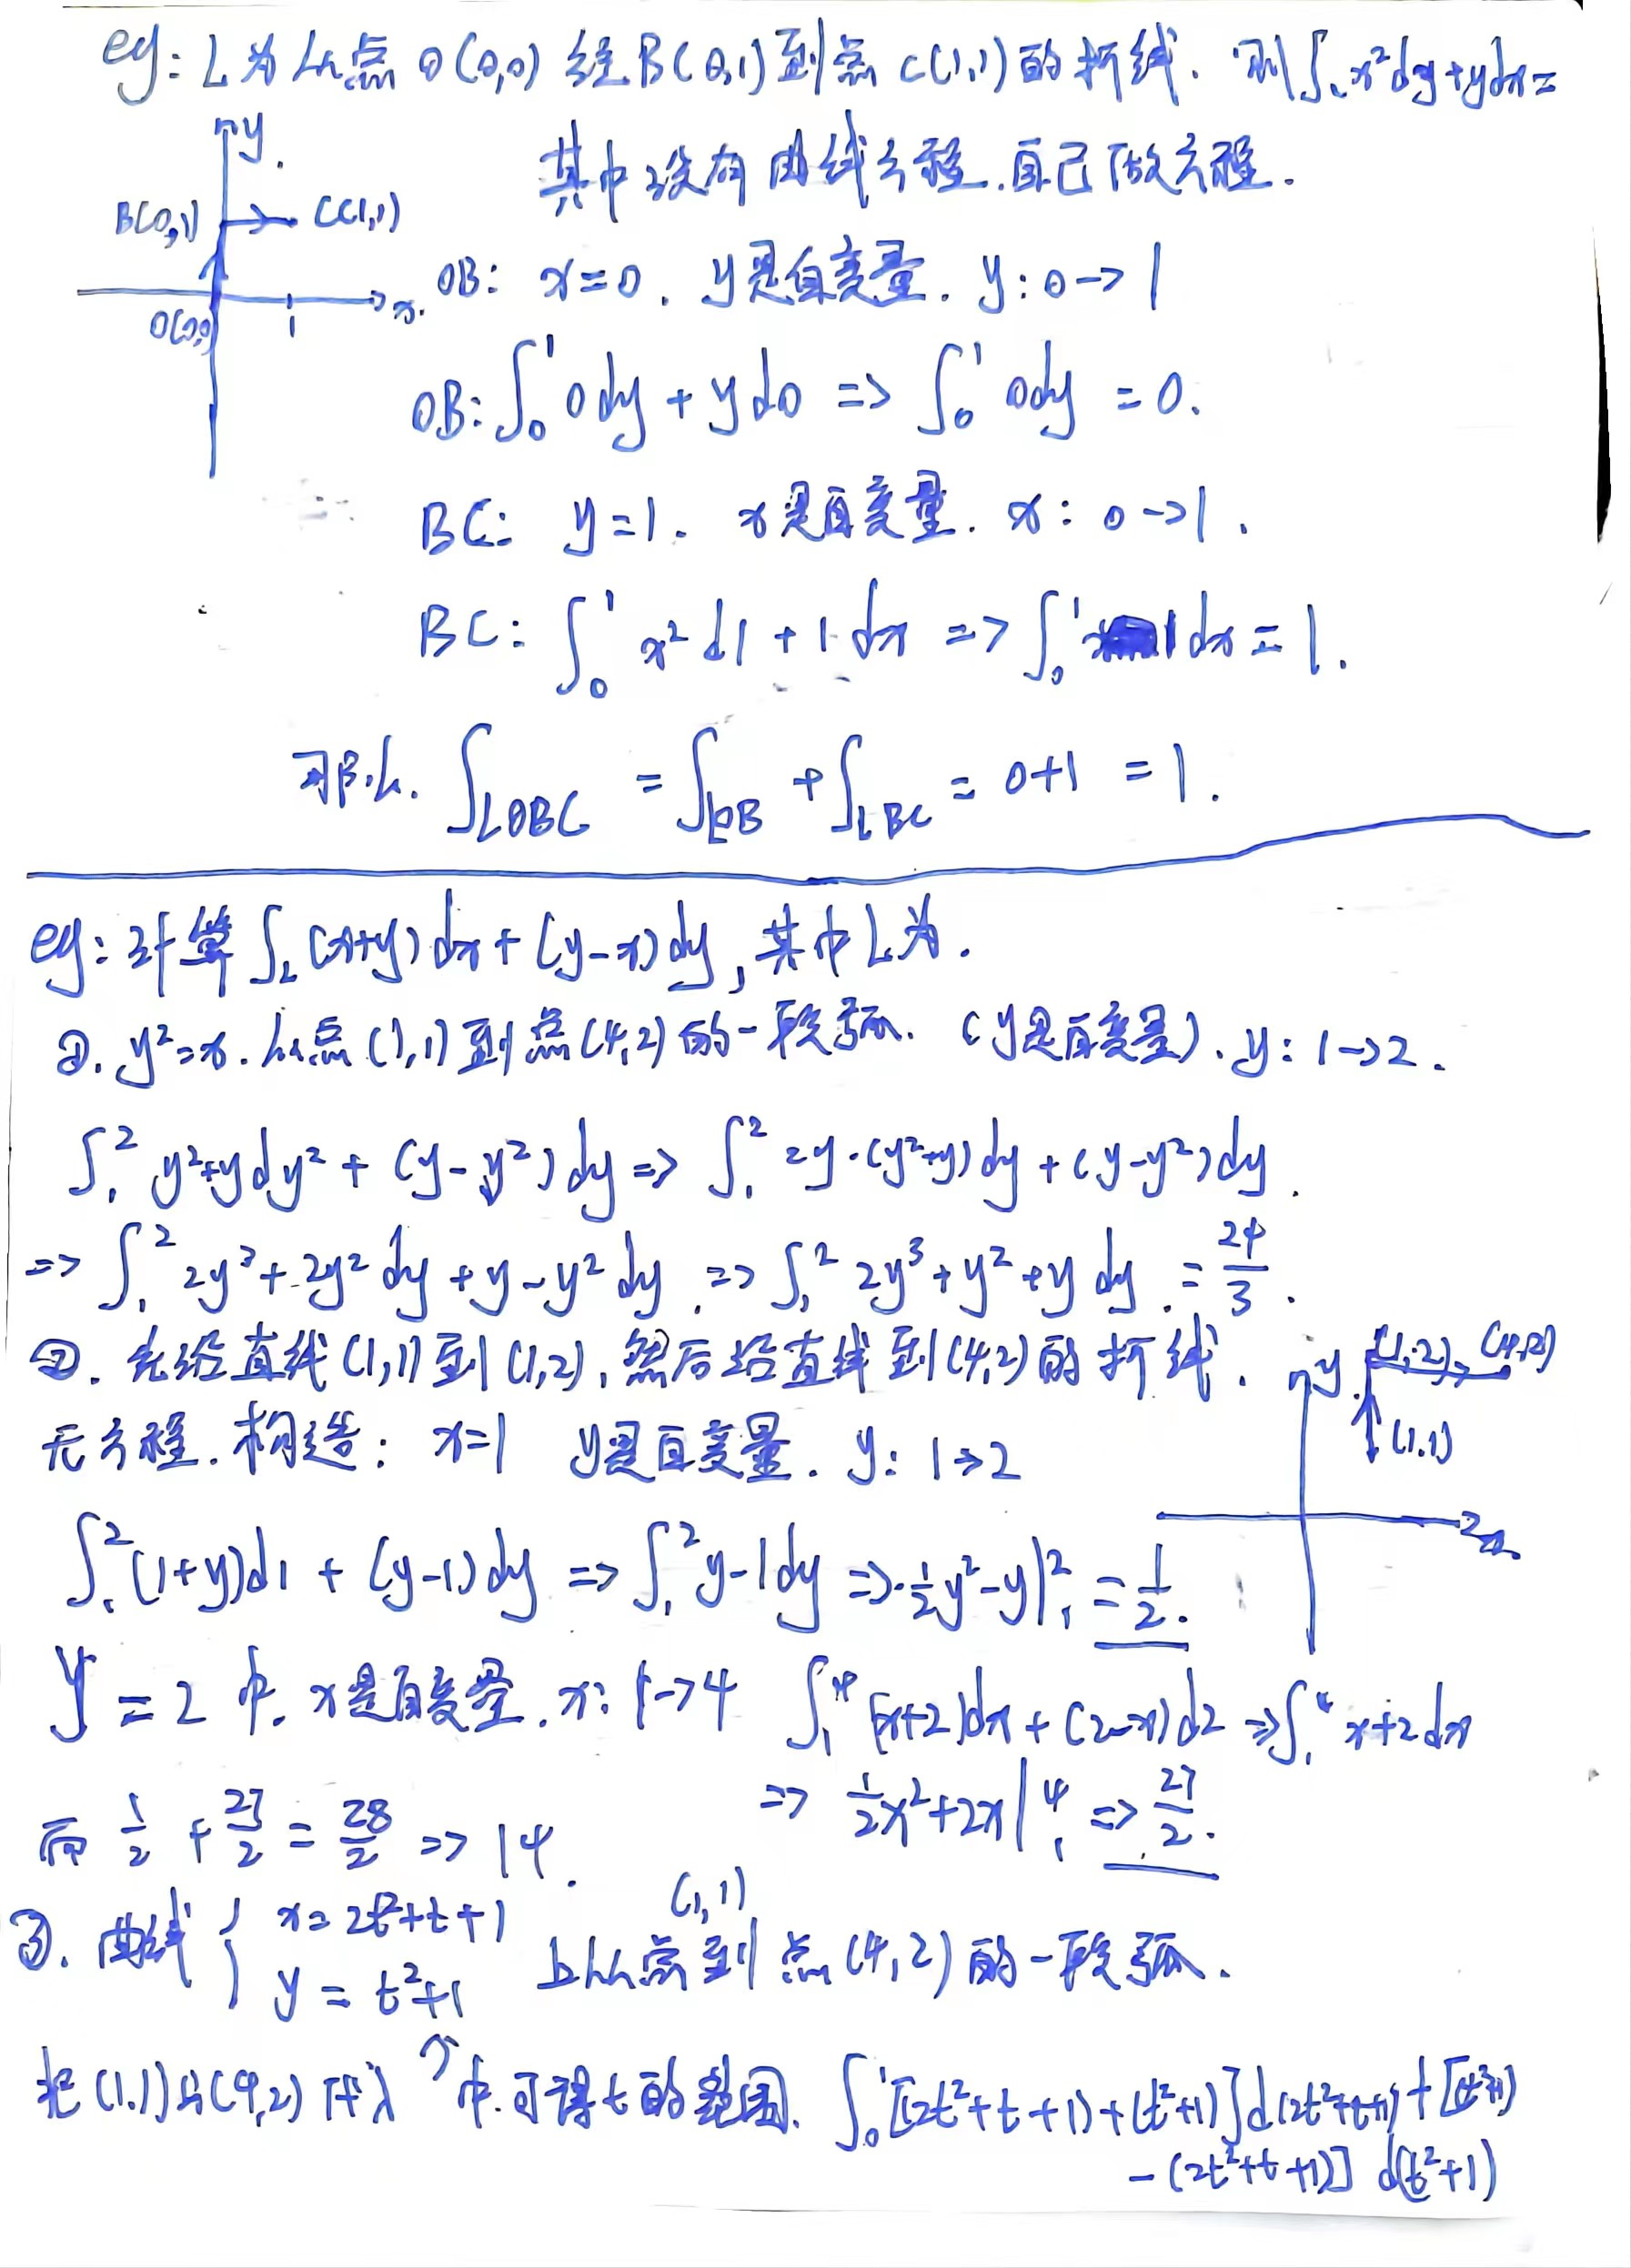 eg: L为从点O(0,0)经B(0,1)到点C(1,1)的折线. 则∫L x²dy+ydx=
y
其中没有曲线方程.自己做方程.
B(0,1) C(1,1)
OB: x=0. y是自变量. y:0->1
x.
O(0,0) 1
OB:∫₀¹ 0dy + yd0 => ∫₀¹ 0dy = 0.
BC: y=1. x是自变量. x: 0->1.
BC: ∫₀¹ x² d1 + 1·dx => ∫₀¹ 1dx = 1.
∫LOBC = ∫LOB + ∫LBC = 0+1 = 1.
eg:计算∫L (x+y)dx+(y-x)dy,其中L为.
①. y²=x.从点(1,1)到点(4,2)的一段弧. (y是自变量). y: 1->2.
∫₁² y²+ydy² + (y-y²)dy => ∫₁² 2y·(y²+y)dy+(y-y²)dy.
=> ∫₁² 2y³+2y²dy+y-y²dy. => ∫₁² 2y³+y²+y dy. = 24/3.
②. 先沿直线(1,1)到(1,2),然后沿直线到(4,2)的折线. y (1,2) (4,2)
无方程.构造: x=1 y是自变量. y: 1->2
(1.1)
x
∫₁² (1+y)d1 + (y-1)dy => ∫₁² y-1dy => ½y²-y|₁² = 1/2.
y=2中. x是自变量. x: 1->4 ∫₁⁴ (x+2)dx+(2-x)d2 => ∫₁⁴ x+2dx
=> ½x²+2x|₁⁴ => 27/2.
而 1/2 + 27/2 = 28/2 => 14.
(1,1)
③. 曲线{ x=2t²+t+1 上从点到点(4,2)的一段弧.
y = t²+1
把(1.1)与(4,2)代入↑中.可得t的范围. ∫₀¹ [(2t²+t+1)+(t²+1)]d(2t²+t+1)+[(t²+1)
-(2t²+t+1)] d(t²+1)